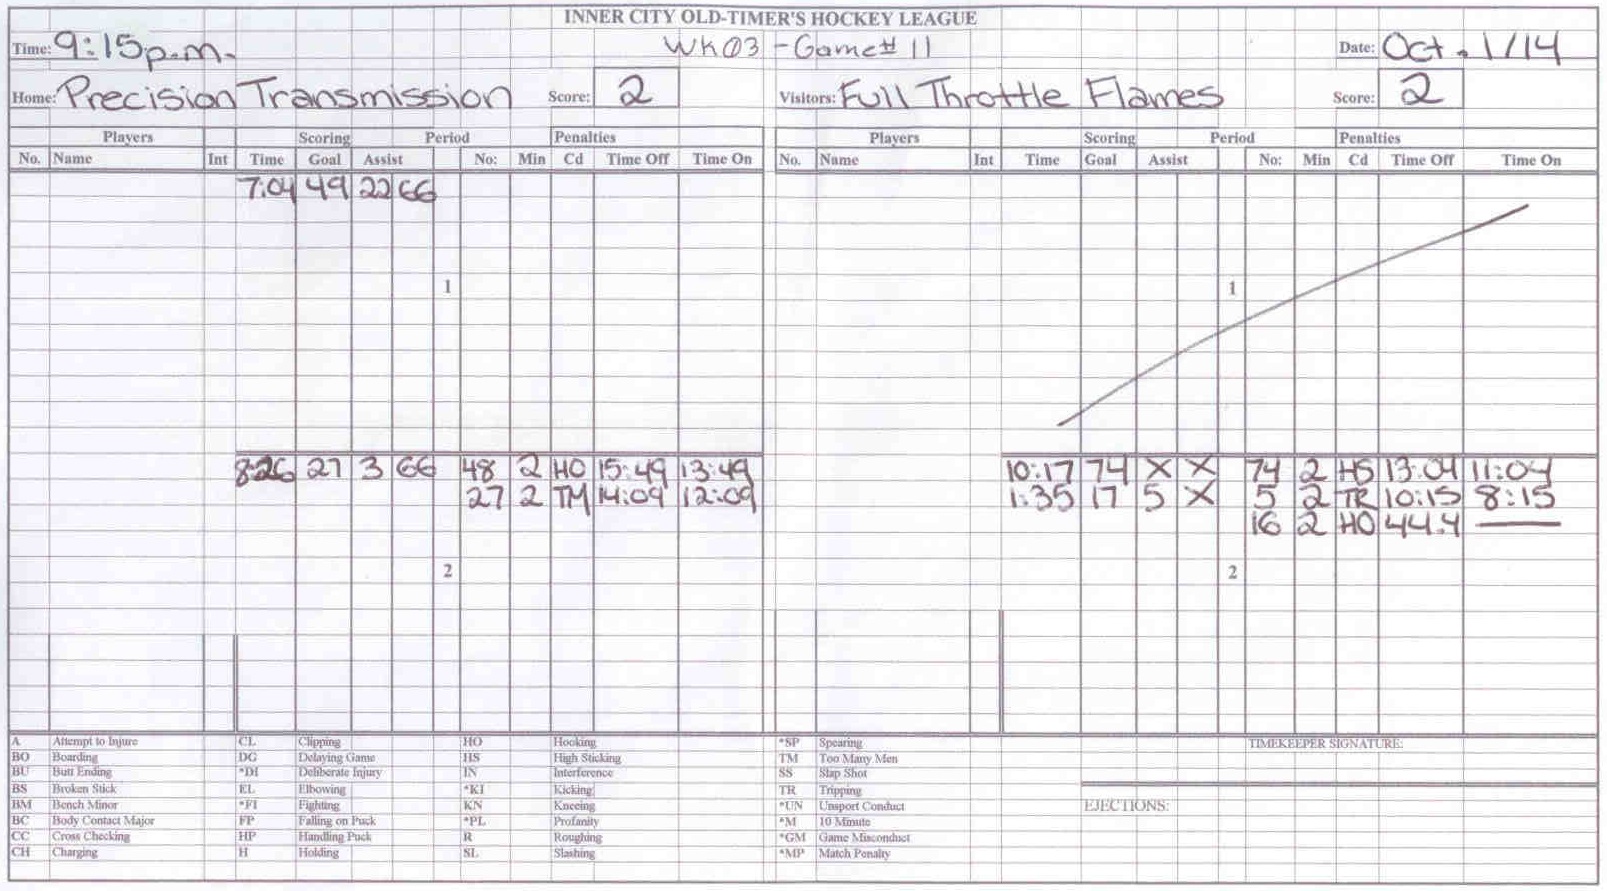 INNER CITY OLD-TIMER'S HOCKEY LEAGUE
Time: 9:15p.m. WK03 - Game# 11 Date: Oct. 1/14
Home: Precision Transmission Score: 2 Visitors: Full Throttle Flames Score: 2
Players Scoring Period Penalties Players Scoring Period Penalties
No. Name Int Time Goal Assist No: Min Cd Time Off Time On No. Name Int Time Goal Assist No: Min Cd Time Off Time On
7:04 49 22 66
1 1
8:26 27 3 66 48 2 HO 15:49 13:49 10:17 74 X X 74 2 HS 13:04 11:04
27 2 TM 14:09 12:09 1:35 17 5 X 5 2 TR 10:15 8:15
16 2 HO 44.4 —
2 2
A Attempt to Injure CL Clipping HO Hooking *SP Spearing TIMEKEEPER SIGNATURE:
BO Boarding DG Delaying Game HS High Sticking TM Too Many Men
BU Butt Ending *DI Deliberate Injury IN Interference SS Slap Shot
BS Broken Stick EL Elbowing *KI Kicking TR Tripping
BM Bench Minor *FI Fighting KN Kneeing *UN Unsport Conduct EJECTIONS:
BC Body Contact Major FP Falling on Puck *PL Profanity *M 10 Minute
CC Cross Checking HP Handling Puck R Roughing *GM Game Misconduct
CH Charging H Holding SL Slashing *MP Match Penalty